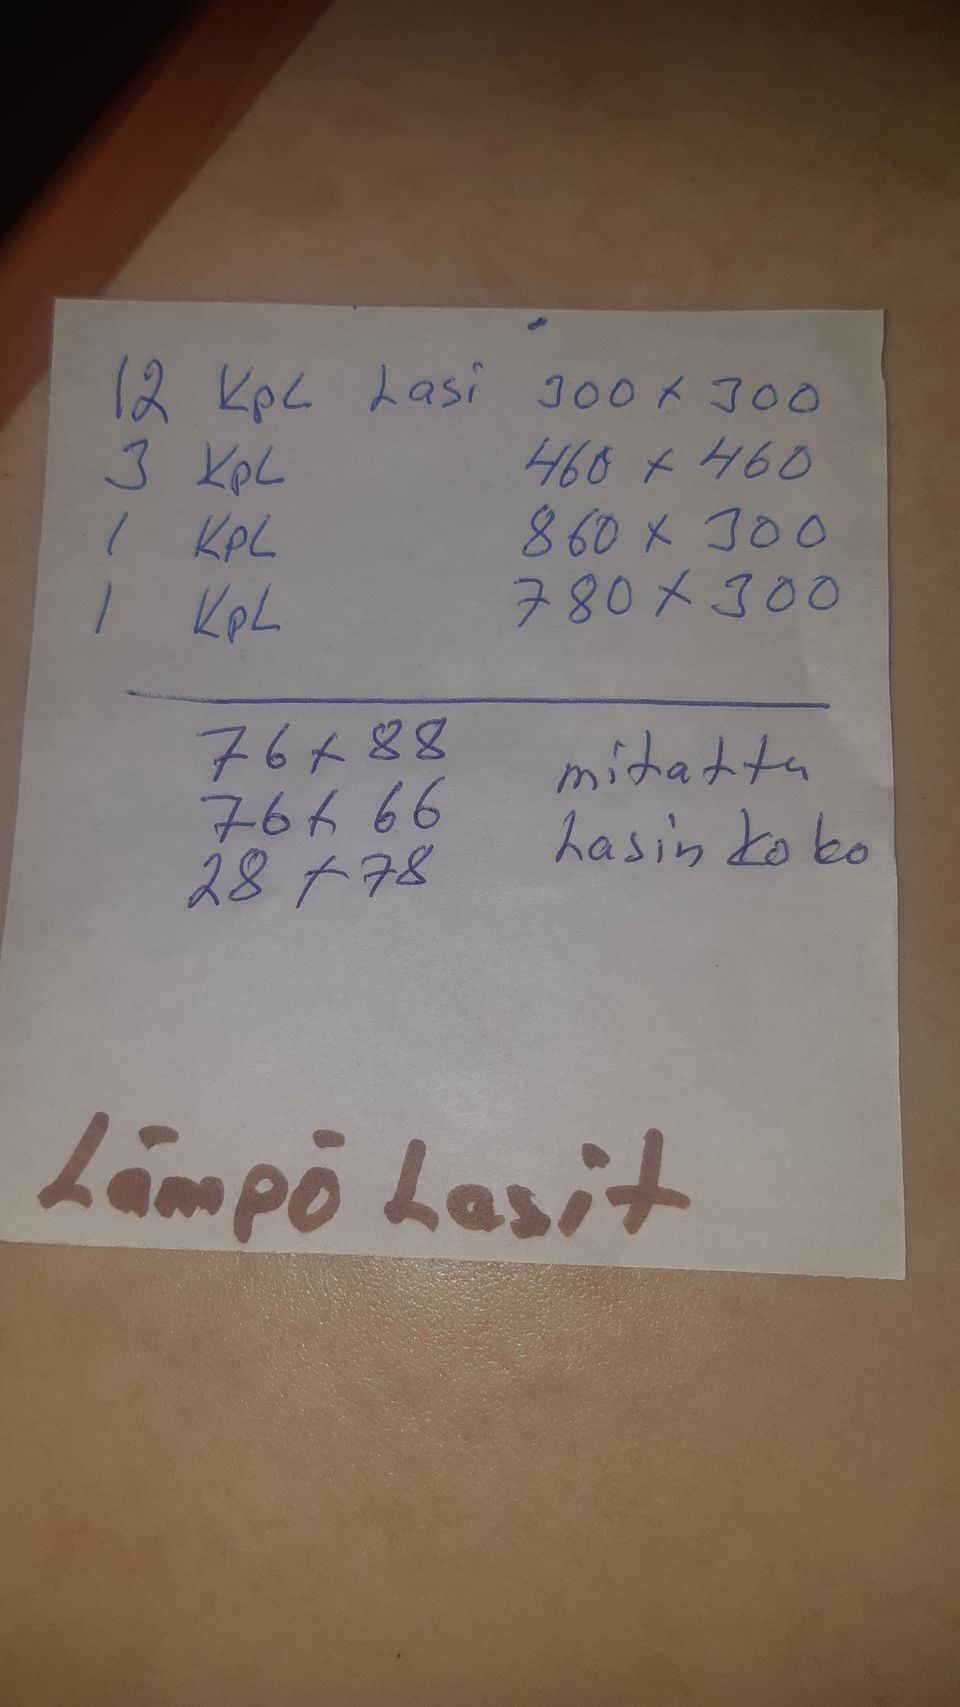 12 KpL Lasi 300 x 300
3 KpL 460 x 460
1 KpL 860 x 300
1 KpL 780 x 300
76 x 88 mitattu
76 x 66 Lasin koko
28 x 78
Lämpö Lasit